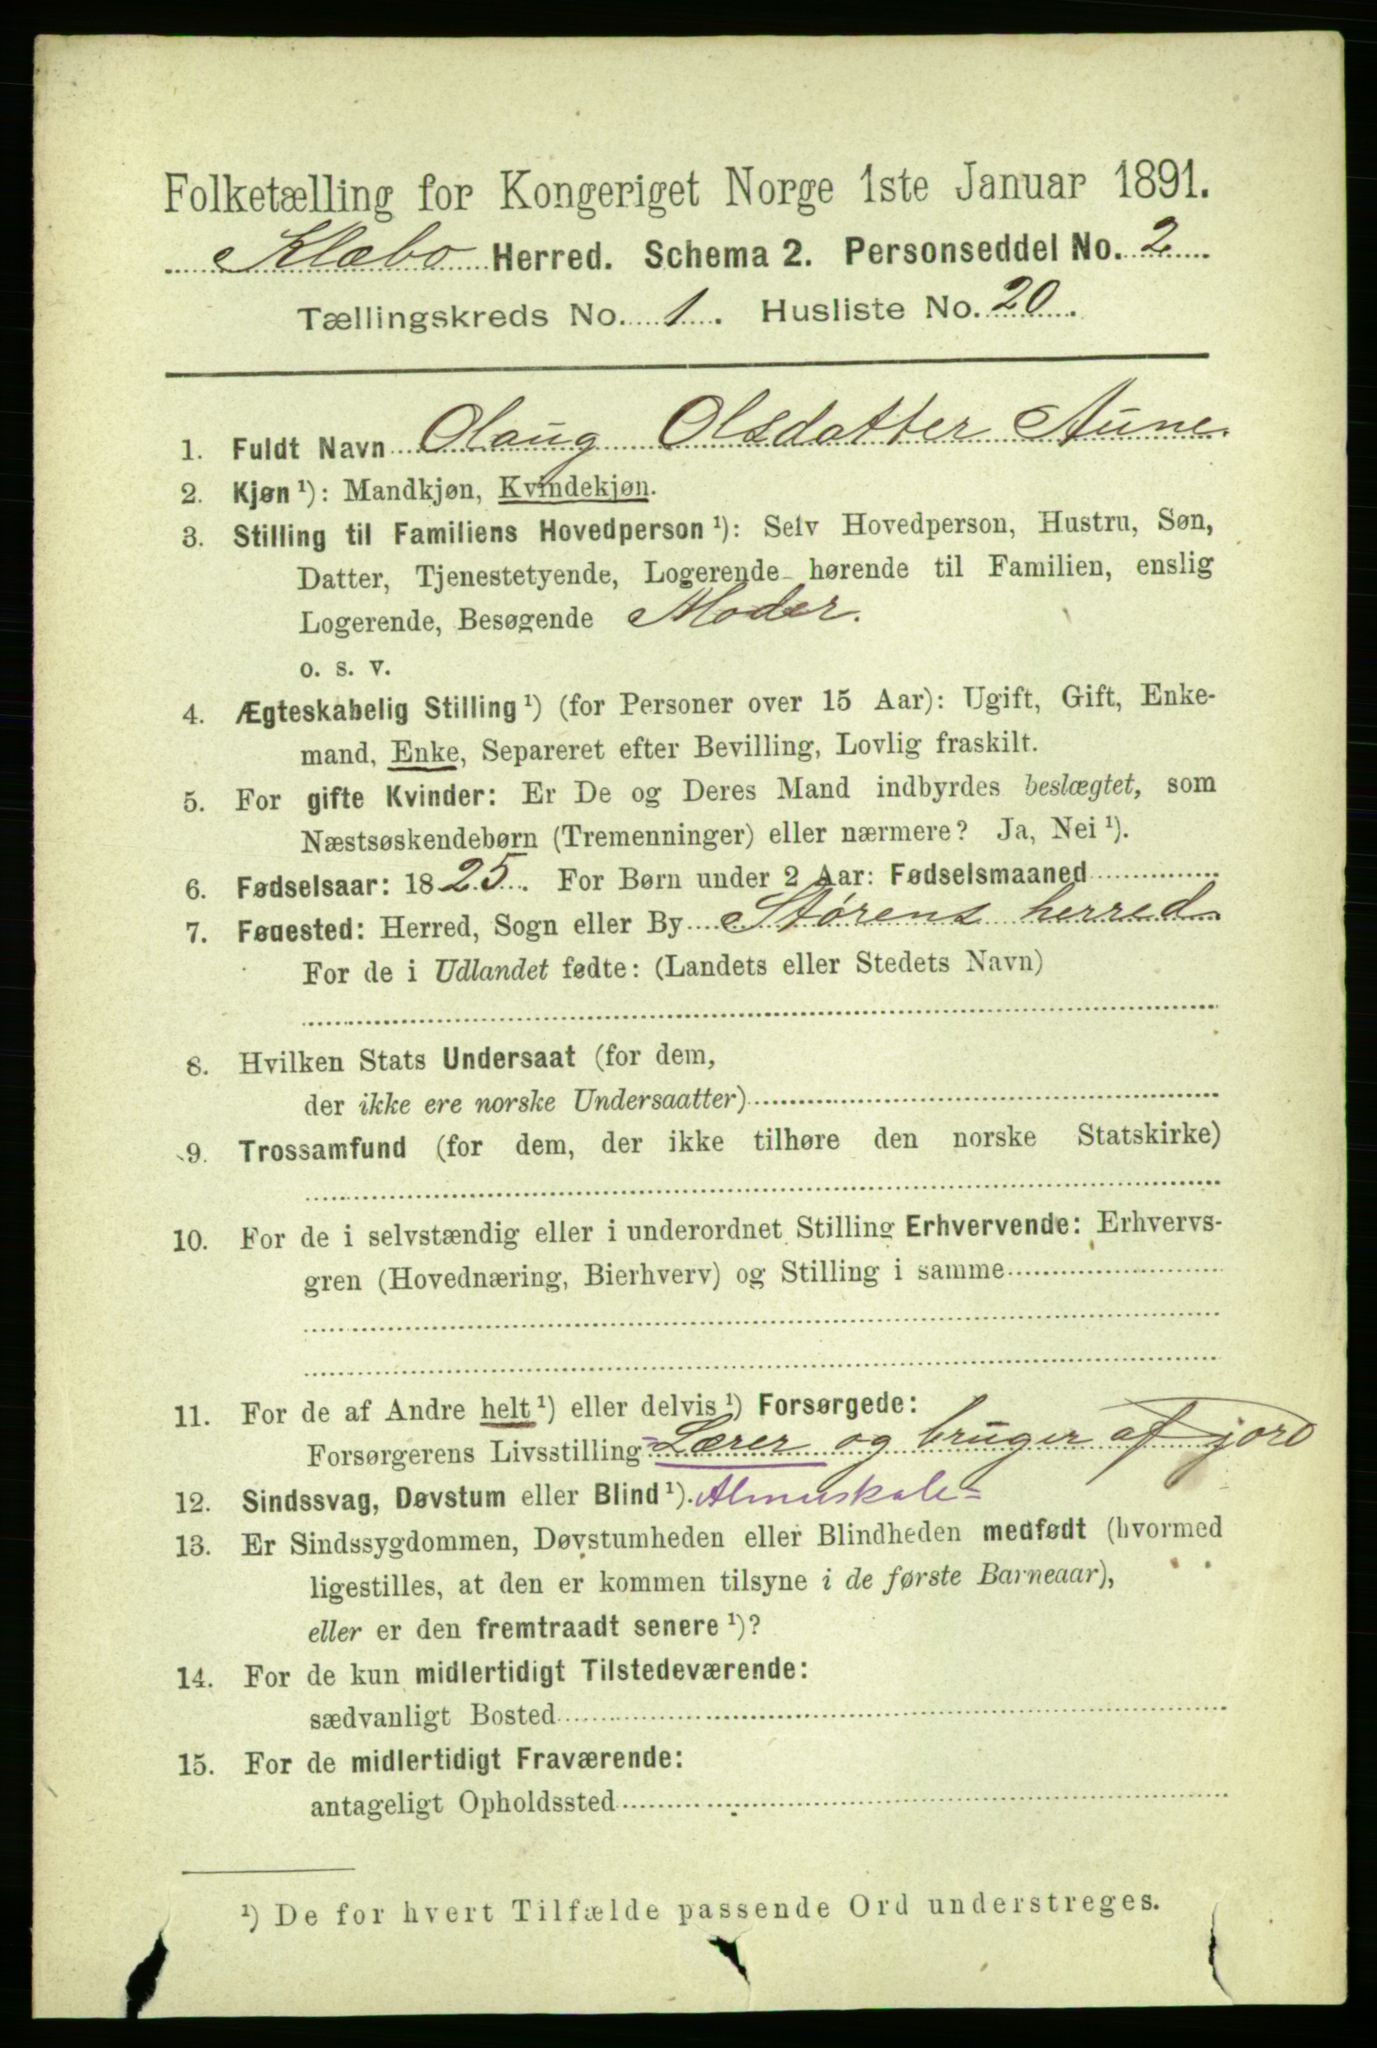 Folketælling for Kongeriget Norge 1ste Januar 1891.
Klæbo Herred. Schema 2. Personseddel No. 2
Tællingskreds No. 1. Husliste No. 20.
1. Fuldt Navn Olaug Olsdatter Aune.
2. Kjøn ¹): Mandkjøn, Kvindekjøn.
3. Stilling til Familiens Hovedperson ¹): Selv Hovedperson, Hustru, Søn,
Datter, Tjenestetyende, Logerende hørende til Familien, enslig
Logerende, Besøgende Moder.
o. s. v.
4. Ægteskabelig Stilling ¹) (for Personer over 15 Aar): Ugift, Gift, Enke-
mand, Enke, Separeret efter Bevilling, Lovlig fraskilt.
5. For gifte Kvinder: Er De og Deres Mand indbyrdes beslægtet, som
Næstsøskendebørn (Tremenninger) eller nærmere? Ja, Nei ¹).
6. Fødselsaar: 1825. For Børn under 2 Aar: Fødselsmaaned
7. Fødested: Herred, Sogn eller By Størens herred
For de i Udlandet fødte: (Landets eller Stedets Navn)
8. Hvilken Stats Undersaat (for dem,
der ikke ere norske Undersaatter)
9. Trossamfund (for dem, der ikke tilhøre den norske Statskirke)
10. For de i selvstændig eller i underordnet Stilling Erhvervende: Erhvervs-
gren (Hovednæring, Bierhverv) og Stilling i samme
11. For de af Andre helt ¹) eller delvis ¹) Forsørgede:
Forsørgerens Livsstilling Lærer og bruger af jord
12. Sindssvag, Døvstum eller Blind ¹). Almuskole
13. Er Sindssygdommen, Døvstumheden eller Blindheden medfødt (hvormed
ligestilles, at den er kommen tilsyne i de første Barneaar),
eller er den fremtraadt senere ¹)?
14. For de kun midlertidigt Tilstedeværende:
sædvanligt Bosted
15. For de midlertidigt Fraværende:
antageligt Opholdssted
¹) De for hvert Tilfælde passende Ord understreges.